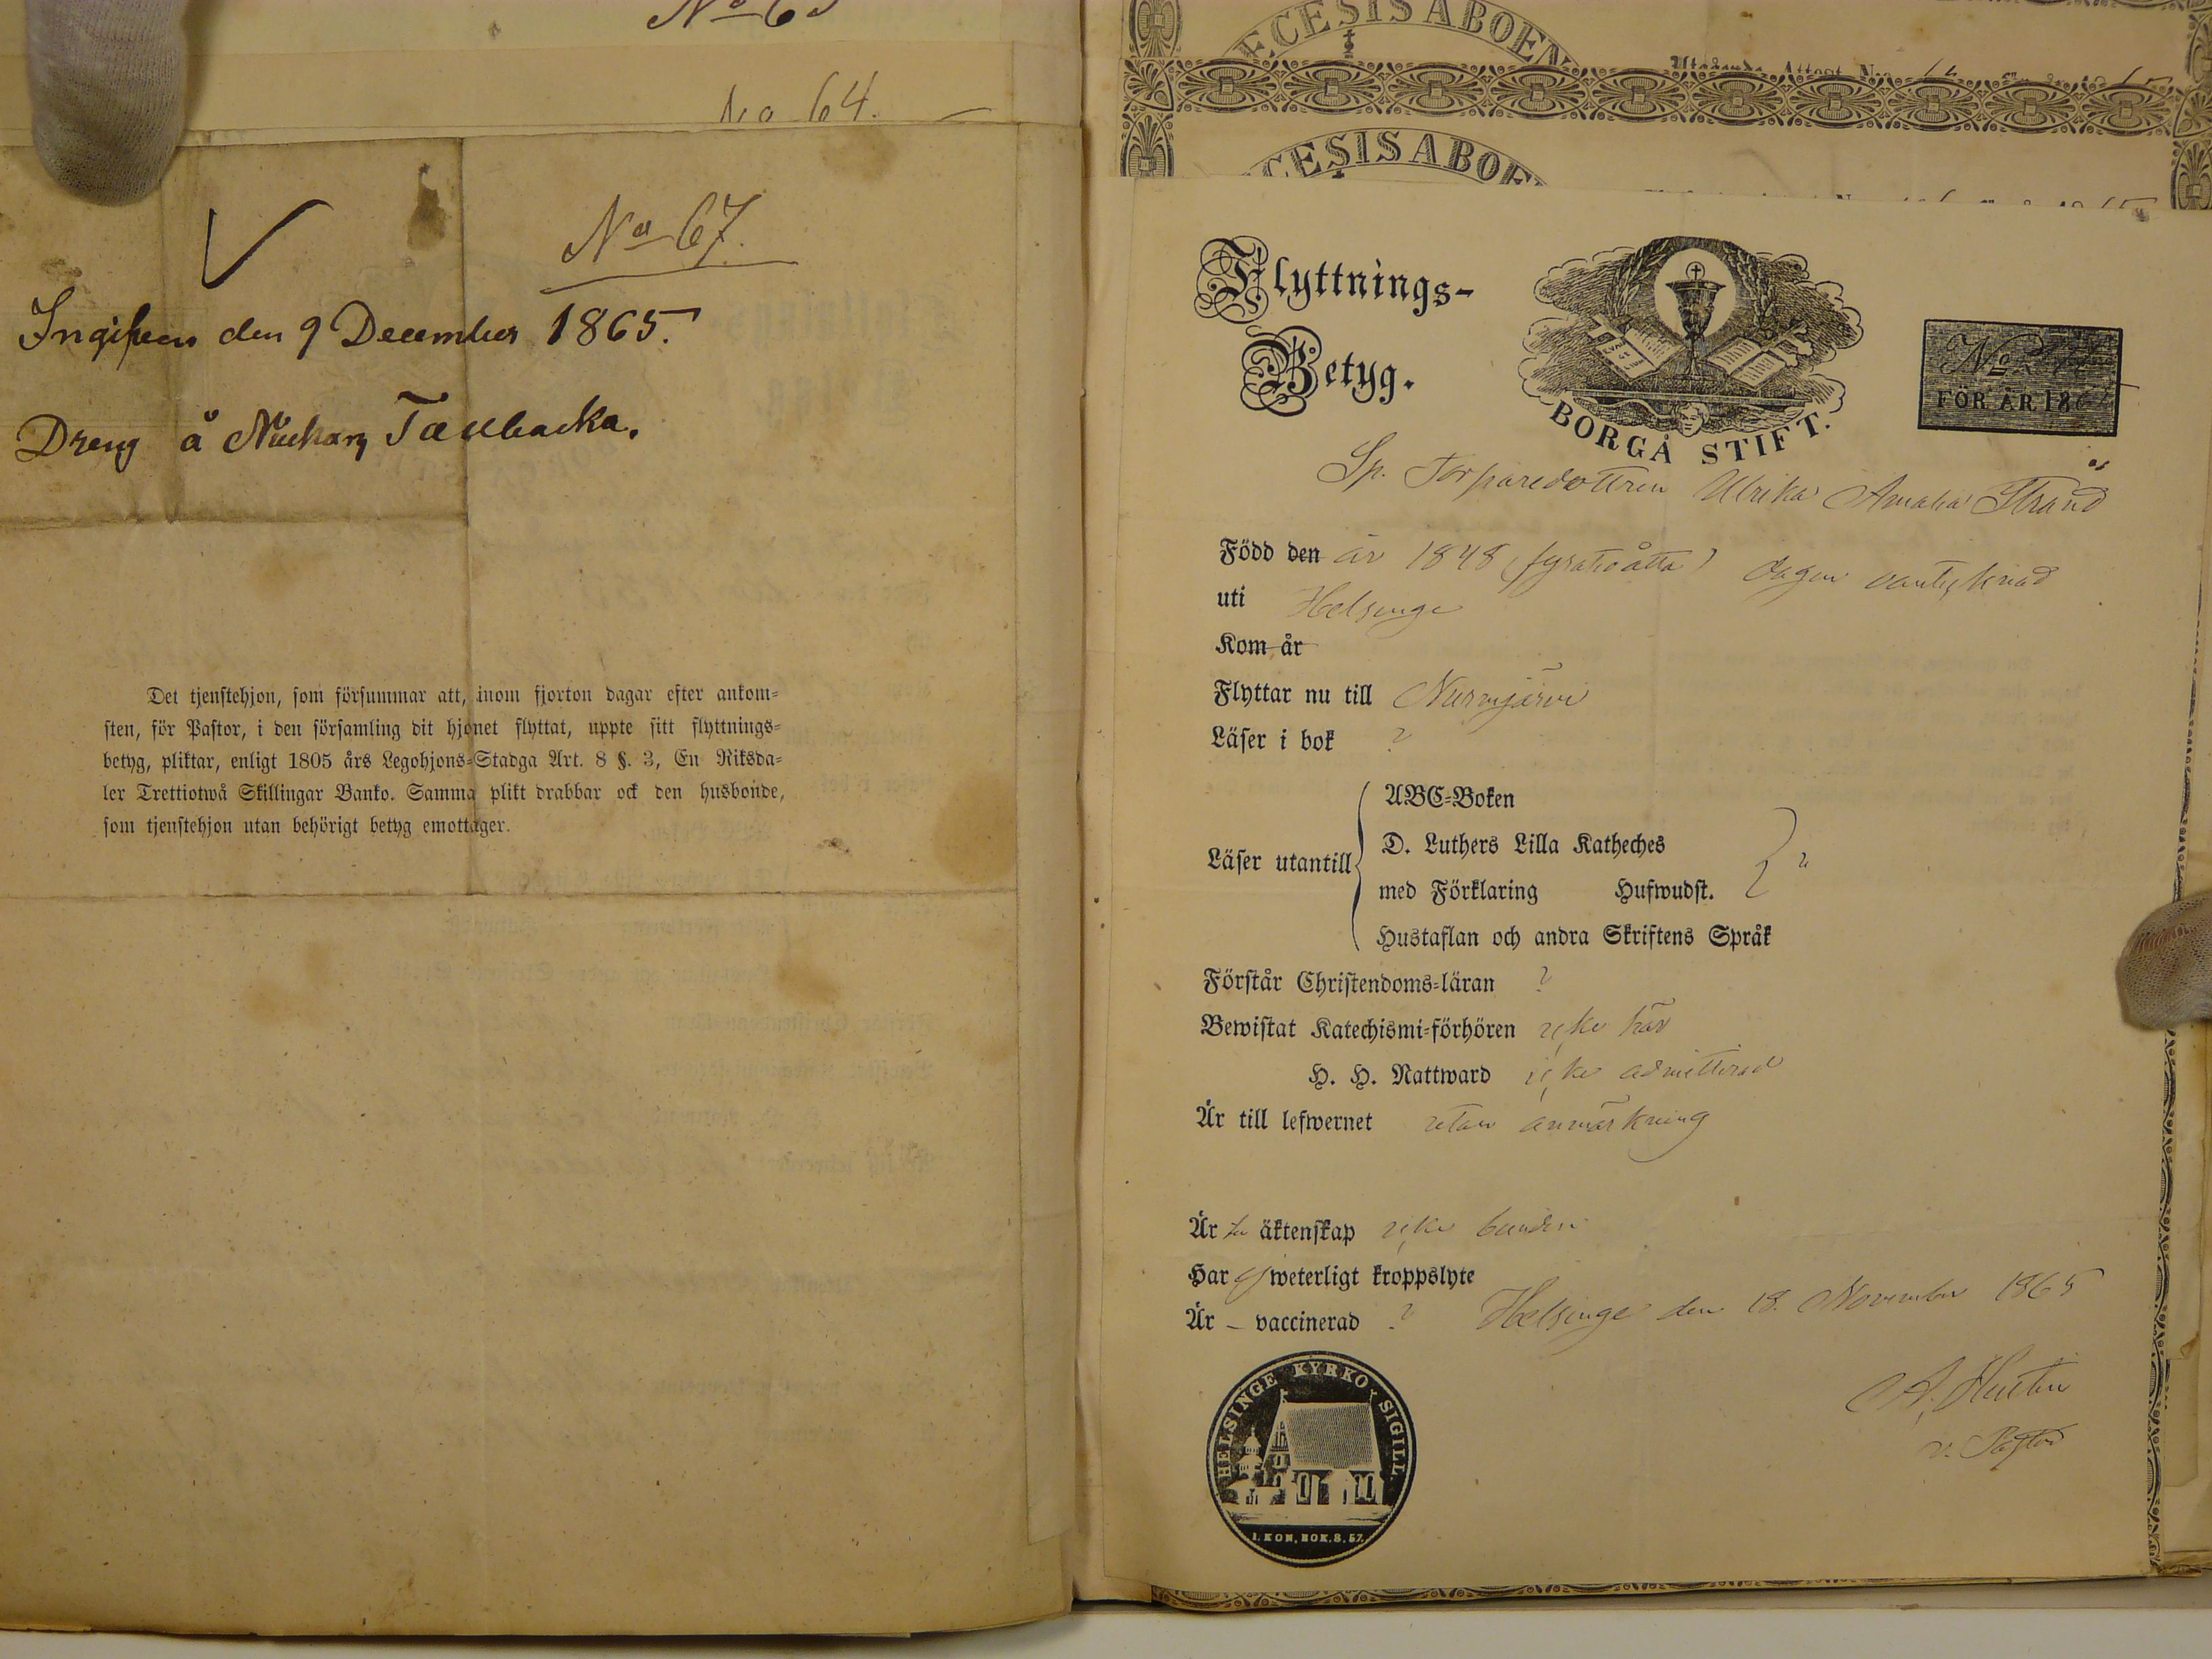 No 64.
No 67.
Ingifven den 9 December 1865.
Dreng å Tallbacka.
Det tjenstehjon, som försummar att, inom fjorton dagar efter ankom-
sten, för Pastor, i den församling dit hjonet flyttat, uppte sitt flyttnings-
betyg, pliktar, enligt 1805 års Legohjons-Stadga Art. 8 §. 3, En Riksda-
ler Trettiotwå Skillingar Banko. Samma plikt drabbar ock den husbonde,
som tjenstehjon utan behörigt betyg emottager.
ECESIS ABOEN
CESIS ABOEN
Flyttnings-
Betyg.
BORGÅ STIFT.
No
FÖR ÅR 186
Sp. Torparedottren Ulrika Amalia Strand
Född den år 1848 (fyratioåtta) dagen
uti Helsinge
Kom år
Flyttar nu till Nurmijärvi
Läser i bok ?
ABC-Boken
D. Luthers Lilla Katheches
Läser utantill
med Förklaring Hufwudst.
Hustaflan och andra Skriftens Språk
Förstår Christendoms-läran ?
Bewistat Katechismi-förhören icke här
H. H. Nattward icke admitterad
Är till lefwernet utan anmärkning
Är till äktenskap icke bunden
Har ej weterligt kroppslyte
Är - vaccinerad ? Helsinge den 18. November 1865
v. Pastor
HELSINGE KYRKO SIGILL
1. KON. BOK. 8. 57.